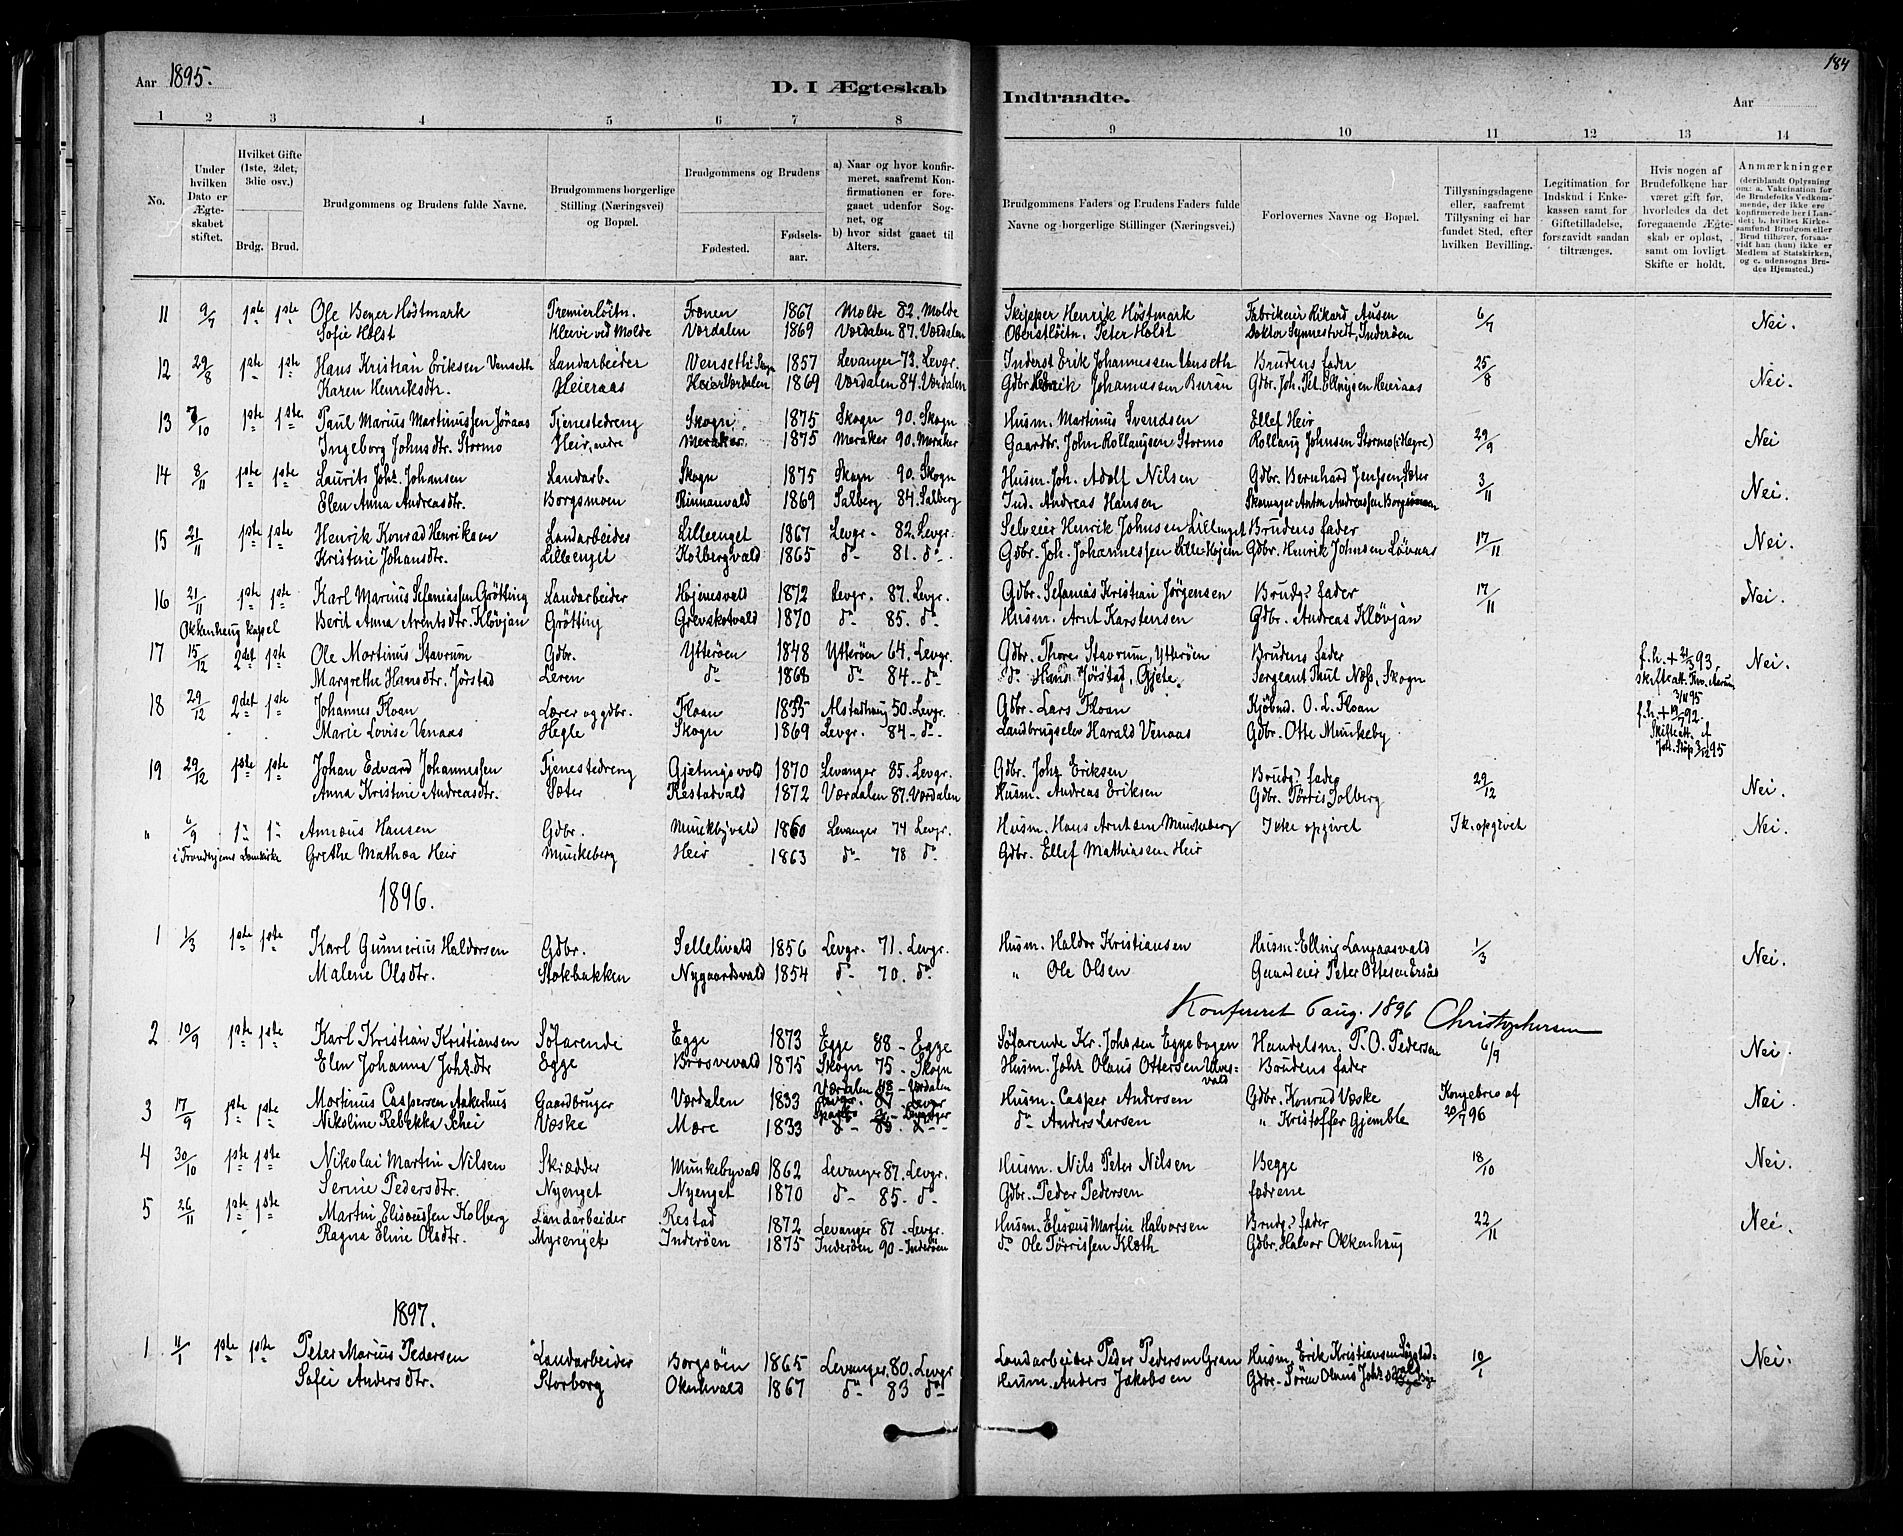 Aar 1895.
D. I Ægteskab
Indtraadte.
Aar
184
1 2 3 4 5 6 7 8 9 10 11 12 13 14
No.
Under hvilken Dato er Ægteskabet stiftet.
Hvilket Gifte (1ste, 2det, 3die osv.)
Brdg. Brud.
Brudgommens og Brudens fulde Navne.
Brudgommens borgerlige Stilling (Næringsvei) og Bopæl.
Brudgommens og Brudens
Fødested.
Fødselsaar.
a) Naar og hvor konfirmeret, saafremt Konfirmationen er foregaaet udenfor Sognet, og
b) hvor sidst gaaet til Alters.
Brudgommens Faders og Brudens Faders fulde Navne og borgerlige Stillinger (Næringsvei.)
Forlovernes Navne og Bopæl.
Tillysningsdagene eller, saafremt Tillysning ei har fundet Sted, efter hvilken Bevilling.
Legitimation for Indskud i Enkekassen samt for Giftetilladelse, forsaavidt saadan tiltrænges.
Hvis nogen af Brudefolkene har været gift før, hvorledes da det foregaaende Ægteskab er opløst, samt om lovligt Skifte er holdt.
Anmærkninger (deriblandt Oplysning om: a. Vakcination for de Brudefolks Vedkommende, der ikke ere konfirmerede her i Landet; b. hvilket Kirkesamfund Brudgom eller Brud tilhører, forsaavidt han (hun) ikke er Medlem af Statskirken, og c. udensogns Brudes Hjemsted.)
11 9/7 1ste 1ste Ole Beyer Høstmark Premierløitn. Frænen 1867 Molde 82. Molde Skipper Henrik Høstmark Fabrikeier Rikard Ausen 6/7 Nei.
Sofie Holst Kleive ved Molde Værdalen 1869 Værdalen 87. Værdalen Oberstløitn. Peter Holst Doktor Synnestvedt, Inderøen
12 29/8 1ste 1ste Hans Kristian Eriksen Venseth Landarbeider Venseth i Skogn 1857 Levanger 73. Levgr. Inderst Erik Johannessen Venseth Brudens fader 25/8 Nei.
Karen Henriksdtr. Heieraas Værdalen 1869 Værdalen 84. Værdalen Gdbr. Henrik Johannessen Gdbr. Joh. Pet. Ellingsen Heieraas
13 7/10 1ste 1ste Paul Marius Martinussen Jøraas Tjenestedreng Skogn 1875 Skogn 90. Skogn Husm. Martinus Svendsen Ellef Heir 29/9 Nei
Ingeborg Johnsdtr. Stormo Heir, nedre Meraker 1875 Meraker 90. Meraker Gaardbr. John Rollaugsen Stormo Rollaug Johnsen Stormo (i Hegre)
14 8/11 1ste 1ste Laurits Johs. Johansen Landarb. Skogn 1875 Skogn 90. Skogn Husm. Joh. Adolf Nilsen Gdbr. Bernhard Jenssen, Sæter 3/11 Nei.
Elen Anna Andreasdtr. Borgsmoen Rinnanvald 1869 Salberg 84. Salberg Ind. Andreas Hansen Skomager Anton Andreassen Borgsmoen
15 21/11 1ste 1ste Henrik Konrad Henriksen Landarbeider Lilleenget 1867 Levgr. 82. Levgr. Selveier Henrik Johnsen Lillenget Brudens fader 17/11 Nei.
Kristine Johansdtr. Lillenget Kolbergvald 1865 do 81. do Gdbr. Joh. Johannessen Lille-Hojem Gdbr. Henrik Johnsen Løvaas
16 21/11 1ste 1ste Karl Marinus Sefaniassen Grøtting Landarbeider Hojemsvald 1872 Levgr. 87. Levgr. Gdbr. Sefanias Kristian Jørgensen Brudgs fader 17/11 Nei.
Okkenhaug kapel Berit Anna Arentsdtr. Kløvjan Grøtting Grevskotvald 1870 do 85. do Husm. Arnt Karstensen Gdbr. Andreas Kløvjan
17 15/12 2det 1ste Ole Mortinus Stavrum Gdbr. Ytterøen 1848 Ytterøen 64. Levgr. Gdbr. Thore Stavrum, Ytterøen Brudens fader f.h. + 21/3 93, Nei.
Margrethe Hansdtr. Jørstad Leren do 1868 do 84. do do Hans Jørstad, Gjete. Sergeant Paul Næss, Skogn skifteatt. 3/11 95
18 29/12 2det 1ste Johannes Floan Lærer og gdbr. Floan 1835 Alstadhaug 50. Levgr. Gdbr. Lars Floan Kjøbmd. O. L. Floan f.h. + 19/7 92.
Marie Lovise Venaas Hegle Skogn 1869 Levgr. 84 do Landbrugselev Harald Venaas Gdbr. Otte Munkeby Skifteatt. af 95
19 29/12 1ste 1ste Johan Edvard Johannessen Tjenestedreng Gjetingsvald 1870 Levanger 85. Levgr. Gdbr. Johs Eriksen Brudgs fader 29/12 Nei.
Anna Kristine Andreasdtr. Sæter Restadvald 1872 Værdalen 87. Værdalen Husm. Andreas Eriksen Gdbr. Tørris Solberg
" 6/9 1" 1" Annæus Hansen Gdbr. Munkbyvald 1860 Levanger 74 Levgr. Husm. Hans Arntsen Munkeberg Ikke opgivet Ik. opgivet Nei.
i Trondhjems Domkirke Grethe Mathea Heir Munkeberg Heir 1863 do 78 do Gdbr. Ellef Mathiassen Heir
1896.
1 1/3 1ste 1ste Karl Gunnerius Haldorsen Gdbr. Sellelivald 1856 Levgr. 71. Levgr. Husm. Haldor Kristiansen Husm. Elling Langaasvald 1/3 Nei.
Malene Olsdtr. Stokbakken Nygaardsvald 1854 do 70. do " Ole Olsen Gaardeier Peter Ottesen Ersås
Konfereret 6 aug. 1896 Christophersen
2 10/9 1ste 1ste Karl Kristian Kristiansen Søfarende Egge 1873 Egge 88 - Egge Søfarende Kr. Johnsen Eggebogen Handelsm. P. O. Pedersen 6/9 Nei.
Elen Johanna Johs.dtr Egge 1875 Skogn 75 - Skogn Husm. Johs Olaus Ottersen Ulvesvald Brudens fader
3 17/9 1ste 1ste Mortinus Caspersen Aakerhus Gaardbruger Værdalen 1833 Værdalen 48 - Værdalen Husm. Casper Andersen Gdbr. Konrad Væske Kongebrev af 20/7 96 Nei.
Nikoline Rebekka Schei Væske Mære 1833 do Anders Larsen " Kristoffer Gjemble
4 30/10 1ste 1ste Nikolai Martin Nilsen Skrædder Munkebyvald 1862 Levanger 87. Levgr. Husm. Nils Peter Nilsen Begge 18/10 Nei.
Serine Pedersdtr. Nyenget Nyenget 1870 do 85. do Gdbr. Peder Pedersen fædrene
5 26/11 1ste 1ste Martin Elisæussen Kolberg Landarbeider Restad 1872 Levanger 87 - Levgr. Husm. Elisæus Martin Halvorsen Brudgs fader 22/11 Nei.
Ragna Eline Olsdtr. Myrenget Inderøen 1875 Inderøen 90 - Inderøen do Ole Tørrissen Klæth Gdbr. Halvor Okkenhaug
1897.
1 11/1 1ste 1ste Peter Marius Pedersen Landarbeider Borgsøen 1865 Levanger 80. Levgr Landarbeider Peder Pedersen Gran Husm. Erik Kristiansen 10/1 Nei.
Sofie Andersdtr. Storborg Okenhvald 1867 do 83 do Husm. Anders Jakobsen Gdbr. Søren Olaus Johs.